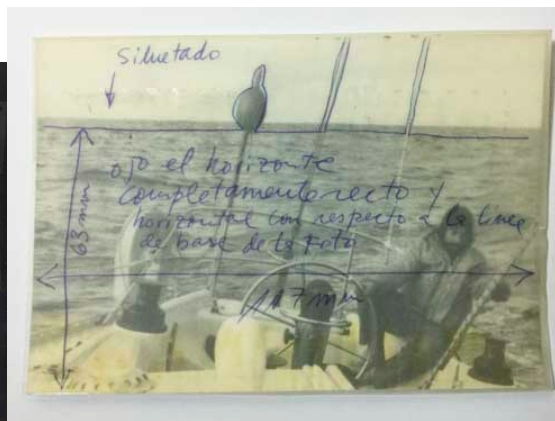 Siluetado
ojo el horizonte
completamente recto y
horizontal con respecto a la línea
de base de la Foto
63 mm
117 mm